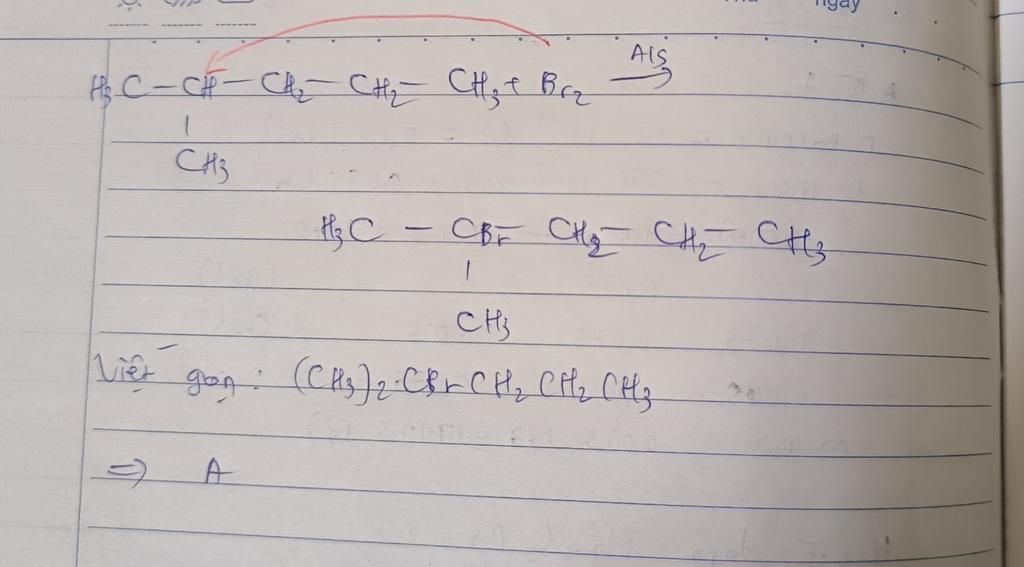 ngày
H₃C – CH – CH₂ – CH₂ – CH₃ + Br₂ →
|
CH₃
H₃C – CBr – CH₂ – CH₂ – CH₃
|
CH₃
Viết gọn : (CH₃)₂ CBr CH₂ CH₂ CH₃
=> A